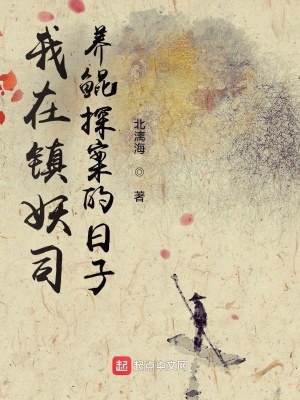 我在镇妖司
养鲲探案的日子
北漓海 ◎ 著
起 起点中文网